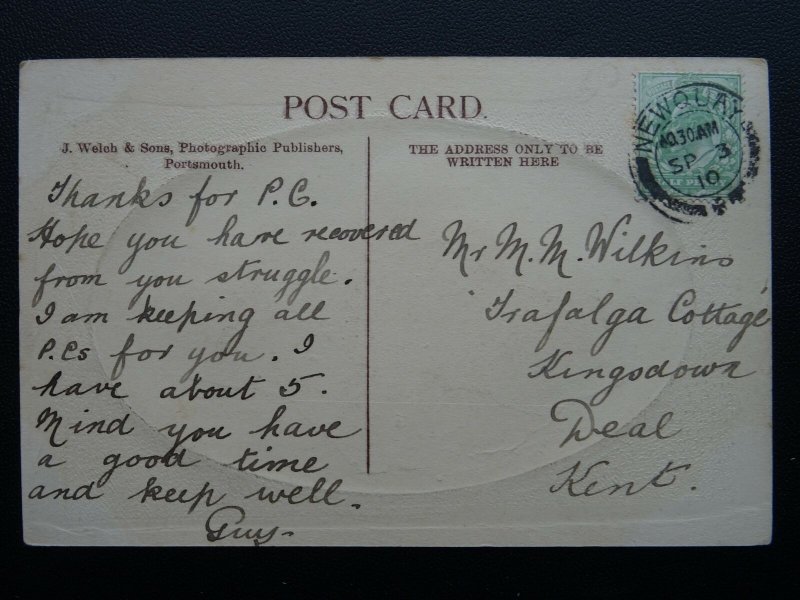 POST CARD.
J. Welch & Sons, Photographic Publishers,
Portsmouth.
THE ADDRESS ONLY TO BE
WRITTEN HERE
NEWQUAY
10.30AM
SP 3
10
Thanks for P.C.
Hope you have recovered
from you struggle.
I am keeping all
P.Cs for you. I
have about 5.
Mind you have
a good time
and keep well.
Guy-
Mr M. M. Wilkins
'Trafalga Cottage'
Kingsdown
Deal
Kent.